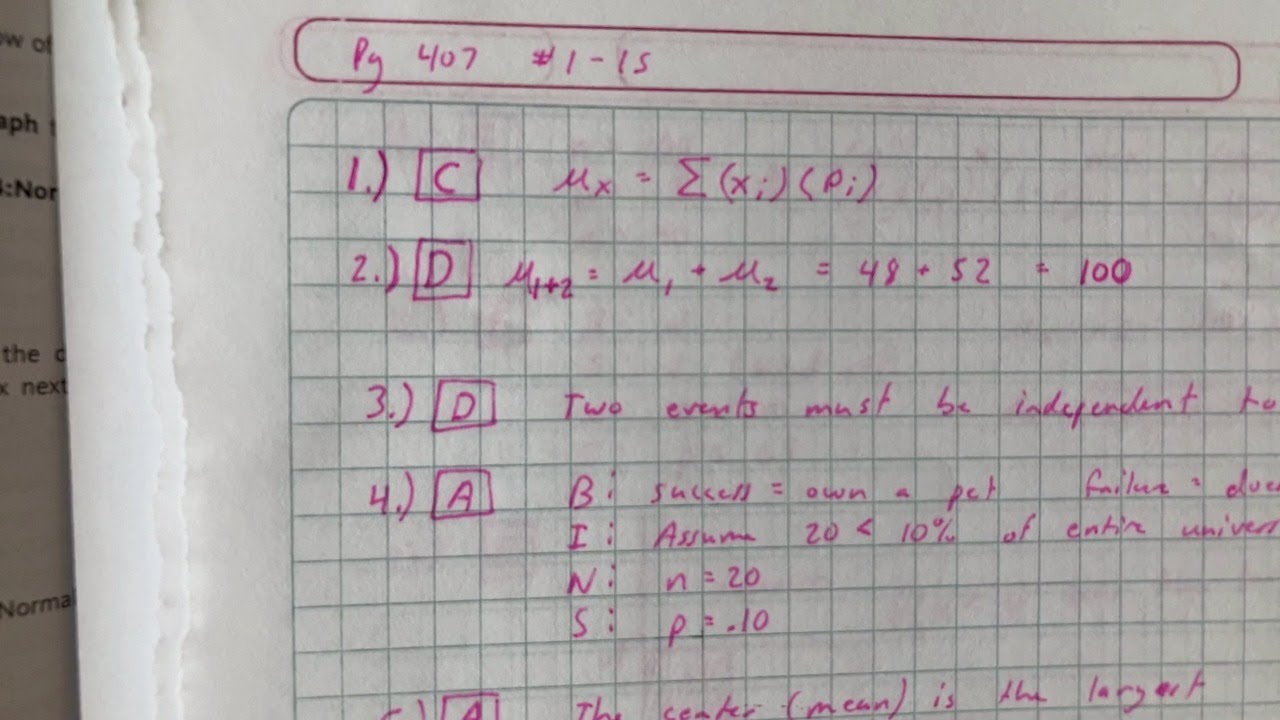 ow of
aph
:Nor
the
x next
Normal
Pg 407 #1-15
1.) C μx = Σ(xi)(pi)
2.) D μ1+2 = μ1 + μ2 = 48 + 52 = 100
3.) D Two events must be independent to
4.) A B: success = own a pet failure = doe
I: Assume 20 < 10% of entire univers
N: n = 20
S: p = .10
5.) A The center (mean) is the largest